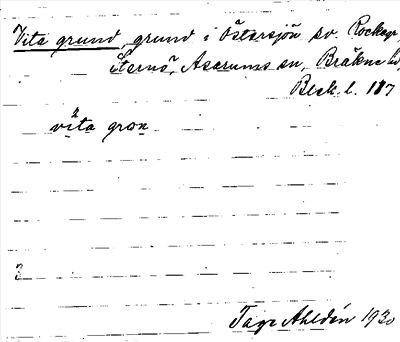 Vita grund, grund i Östersjön sv. Rockegr.,
Sternö, Asarums sn, Bräkne hd,
Blek. l. 117
vita gron
3
Tage Ahldén 1930